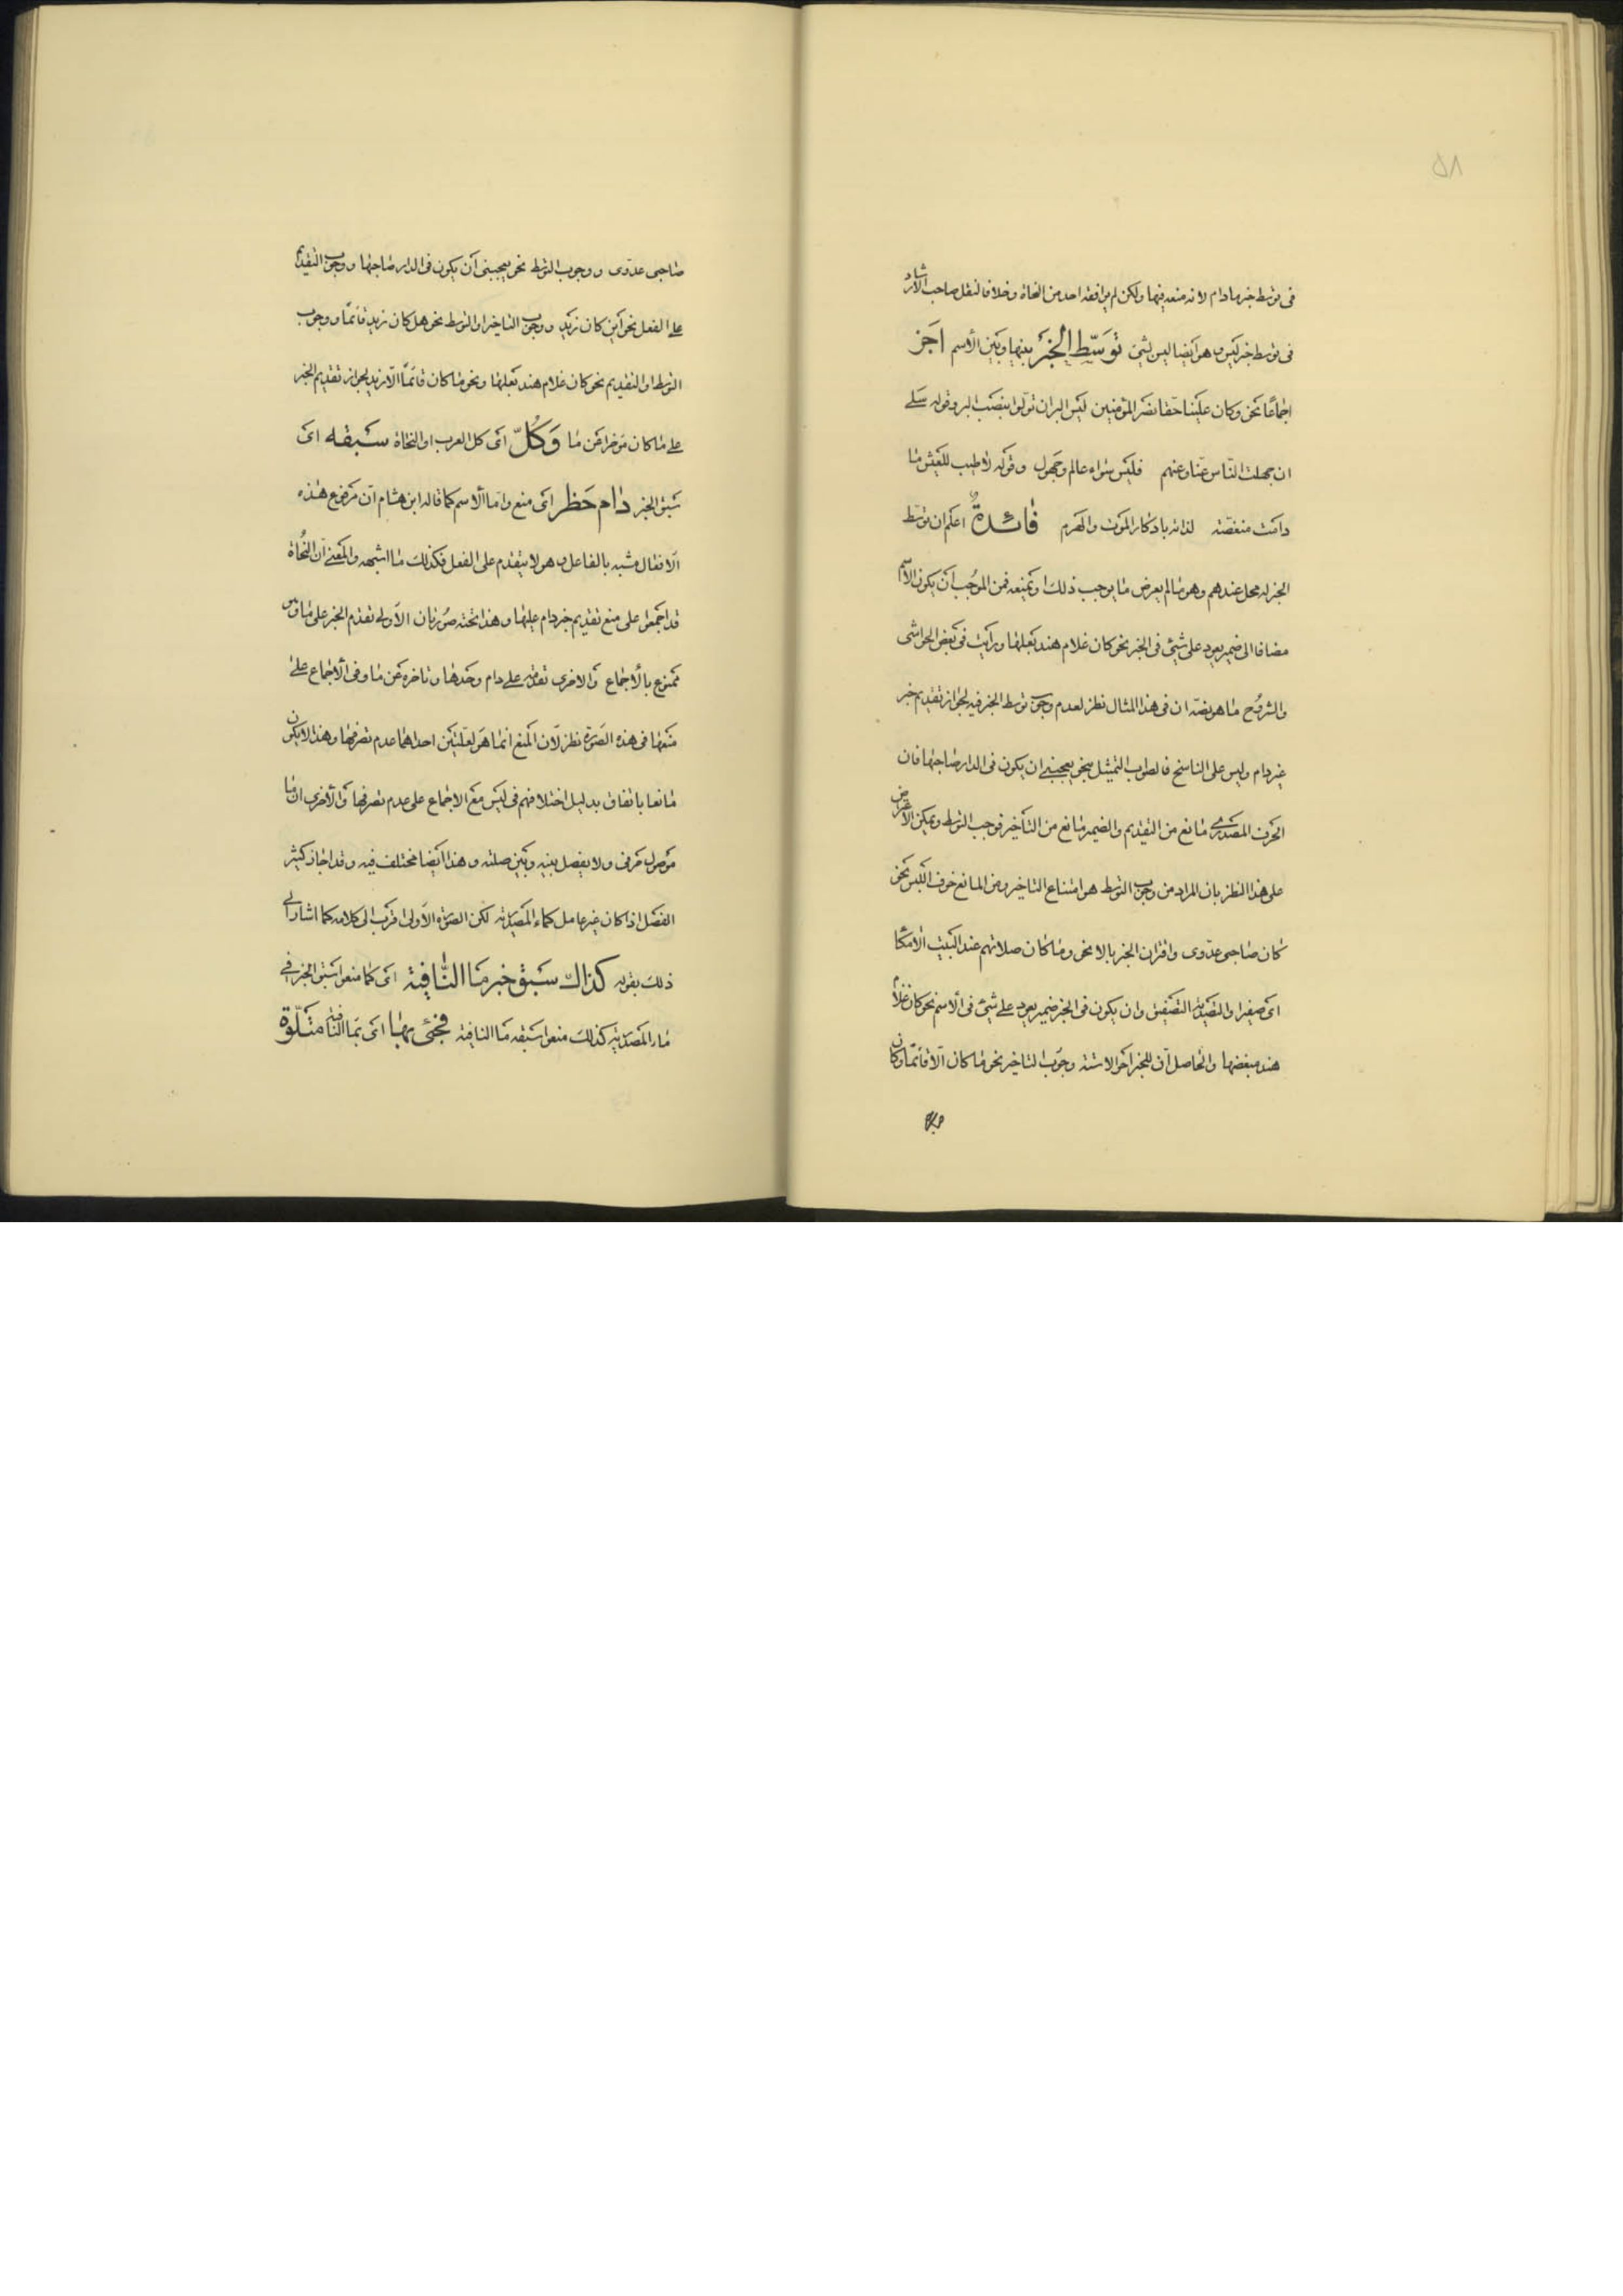 ٥٨
فى توسط خبر مادام لانه منعه فيها ولكن لم يوافقه احد من النحاة وخلافا لنقل صاحب الأرشاد
فى توسط خبر ليس وهو ايضا ليس بشئ توسّط الخبر بينها وبين الأسم اجز
اجماعًا نحو وكان علينا حقا نصر المؤمنين ليس البر ان تولوا بنصب البر وقوله سلى
ان جهلت النّاس عنّا وعنهم فليس سواء عالم وجهول وقوله لا طيب للعيش ما
دامت منغصّة لذاته بادكار الموت والهرم فائدةٌ اعلم ان توسّط
الخبر له محل عندهم وهو ما لم يعرض ما يوجب ذلك او يمنعه فمن الموجب ان يكون الأسم
مضافا الى ضمير يعود على شئ فى الخبر نحو كان غلام هند بعلها ورأيت فى بعض الحواشى
والشروح ما هو نصّه ان فى هذا المثال نظر لعدم وجوب توسط الخبر فيه لجواز تقديم خبر
غير دام وليس على الناسخ فالصواب التمثيل بنحو يعجبنى ان يكون فى الدار صاحبها فان
الحرف المصدرى مانع من التقديم والضمير مانع من التأخير فوجب التوسط ويمكن الأعتراض
على هذا النظر بان المراد من وجوب التوسط هو امتناع التاخير ومن المانع خوف اللبس نحو
كان صاحبى عدّوى واقتران الخبر بالا نحو وما كان صلاتهم عند البيت الا مكاء
اى صفيرا والتصدية التصفيق وان يكون فى الخبر ضمير يعود على شئ فى الأسم نحو كان غلام
هند مبغضها والحاصل ان للخبر احوالا ستة وجوب التاخير نحو ما كان الّا قائمًا وكان
صاحبى عدّوى ووجوب التوسط نحو يعجبنى أن يكون فى الدار صاحبها ووجوب التقديم
على الفعل نحو أين كان زيد ووجوب التاخير او التوسط نحو هل كان زيد قائمًا ووجوب
التوسط او التقديم نحو كان غلام هند بعلها ونحو ما كان قائمًا الّا زيد لجواز تقديم الخبر
على ما كان مؤخرا عن ما وَكُلّ اى كل العرب او النحاة سَبقه اى
سَبق الخبر دام حَظر اى منع واما الاسم كما قاله ابن هشام أن مرفوع هذه
الأفعال مشبه بالفاعل وهو لا يتقدم على الفعل فكذلك ما اشبهه والمعنى أن النُحاة
قد اجمعوا على منع تقديم خبر دام عليها وهذا تحته صُورتان الاولى تقدم الخبر على ما وهو
ممنوع بالأجماع والاخرى تقدّمه على دام وحدها وتاخره عن ما وفى الأجماع على
منعها فى هذه الصّورة نظر لأن المنع انما هو لعلتين احداهما عدم تصرفها وهذا لا يكون
مانعا باتفاق بدليل اختلافهم فى ليس مع الاجماع على عدم تصرفها والأخرى ان ما
موصول حرفى ولا يفصل بينه وبين صلته وهذا ايضا مختلف فيه وقد اجاز كثير
الفصل اذا كان غير عامل كماء المصدرية لكن الصورة الأولى اقرب الى كلامه كما اشار الى
ذلك بقوله كذاك سَبق خبر مَا النّافية اى كما منعوا سبق الخبر فى
ما المصدرية كذلك منعوا سبقه ما النافية فجئ بها اى بما النافية متلّوة